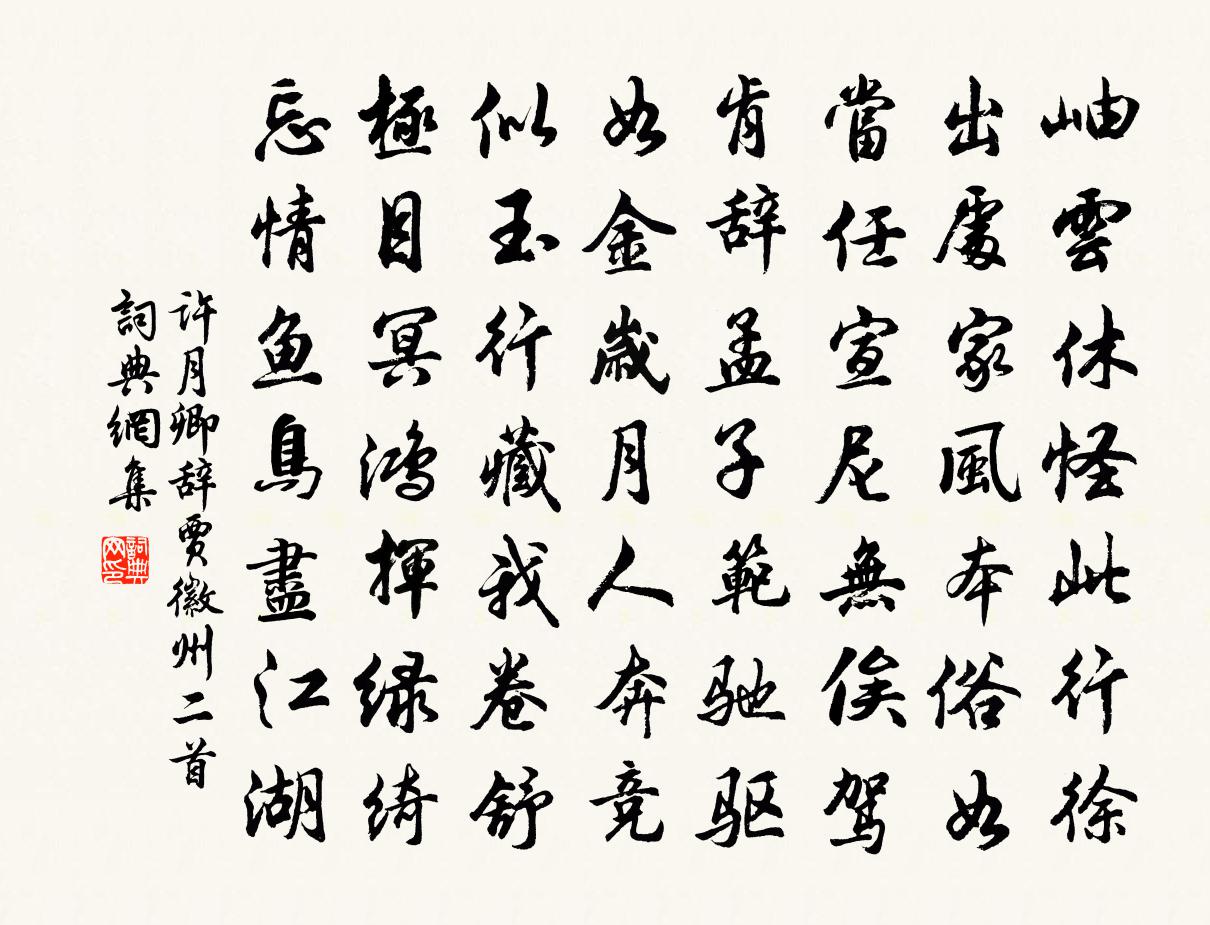 岫雲休怪此行徐
出處家風本俗如
當任宣尼無俟駕
肯辞孟子範驰驱
如金歲月人奔競
似玉行藏我卷舒
極目冥鸿揮绿绮
忘情鱼鳥盡江湖
许月卿辞贾徽州二首
詞典網集
詞典网印